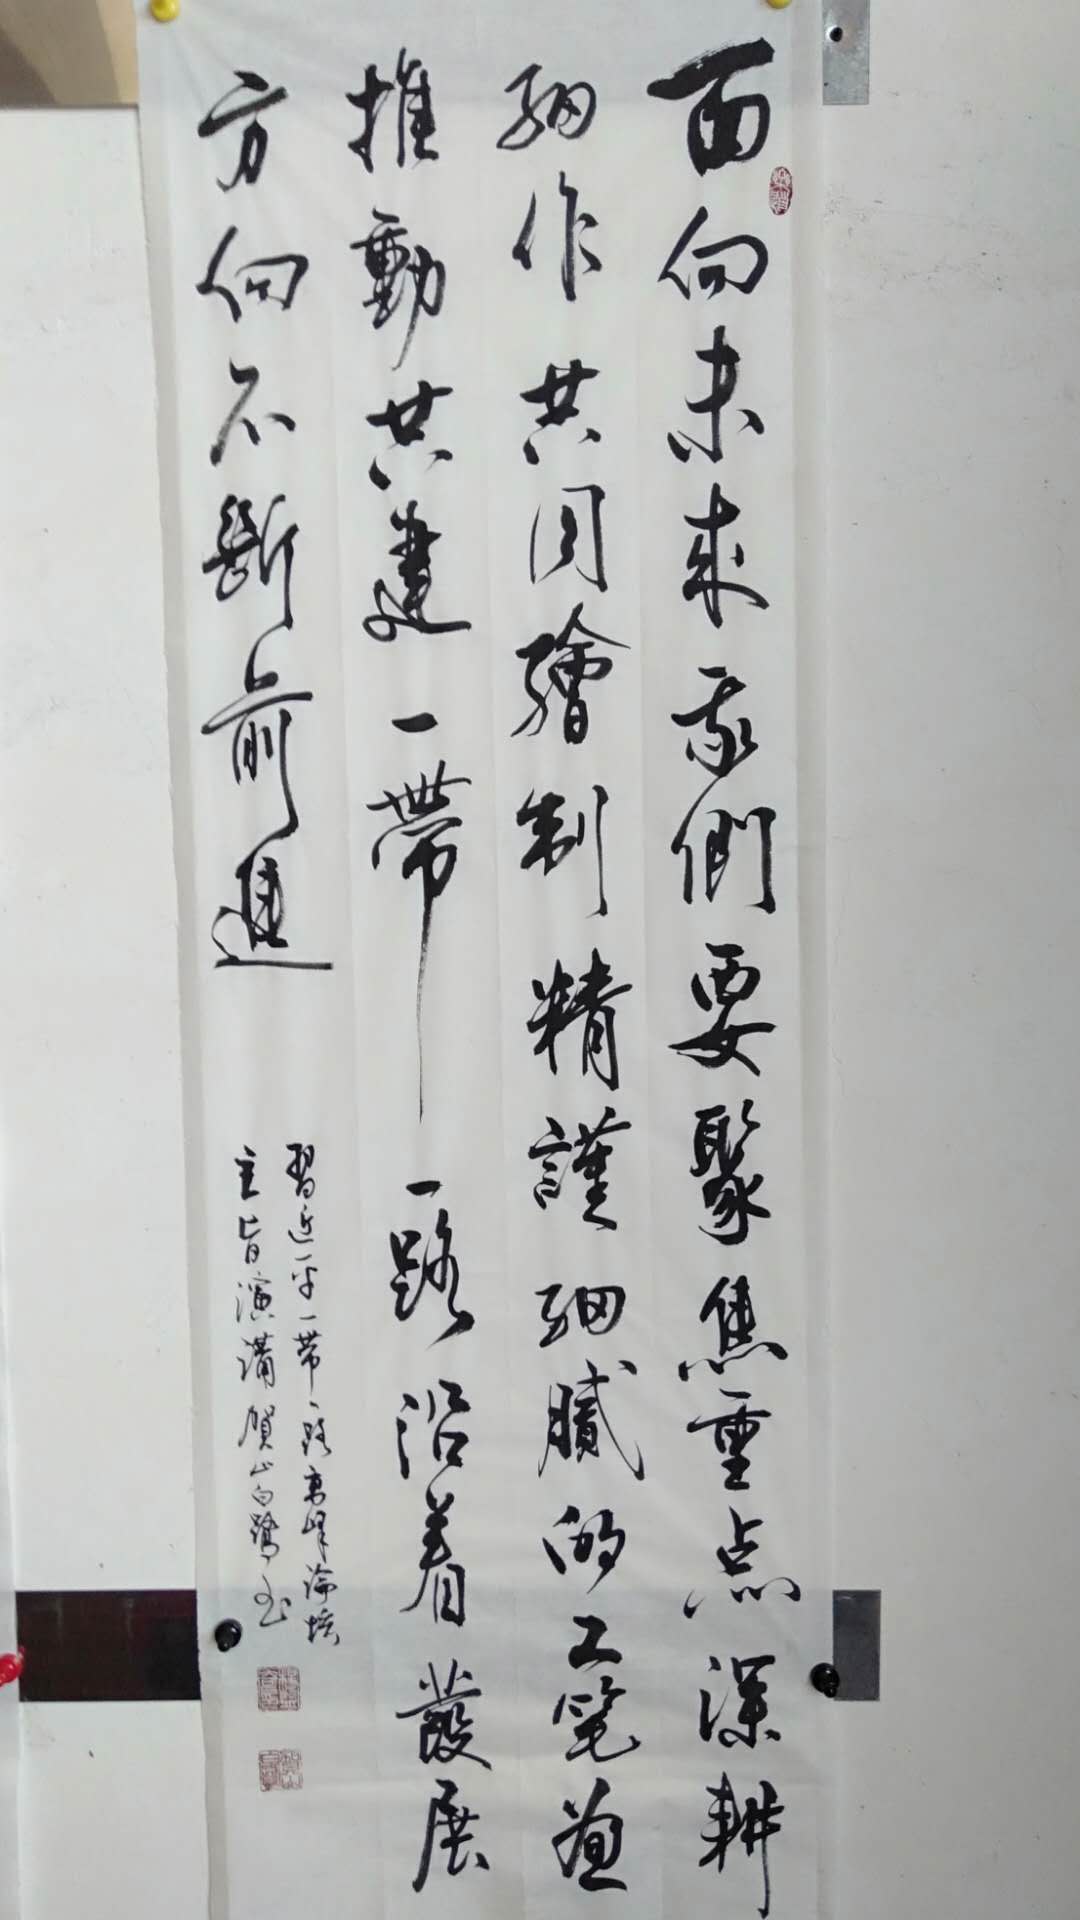 面向未来我們要聚焦重点深耕
細作共同繪制精謹細膩的工笔畫
推動共建一帶一路沿着發展
方向不斷前進
習近平一带一路高峰論壇
主旨演講賀岩白鷺书